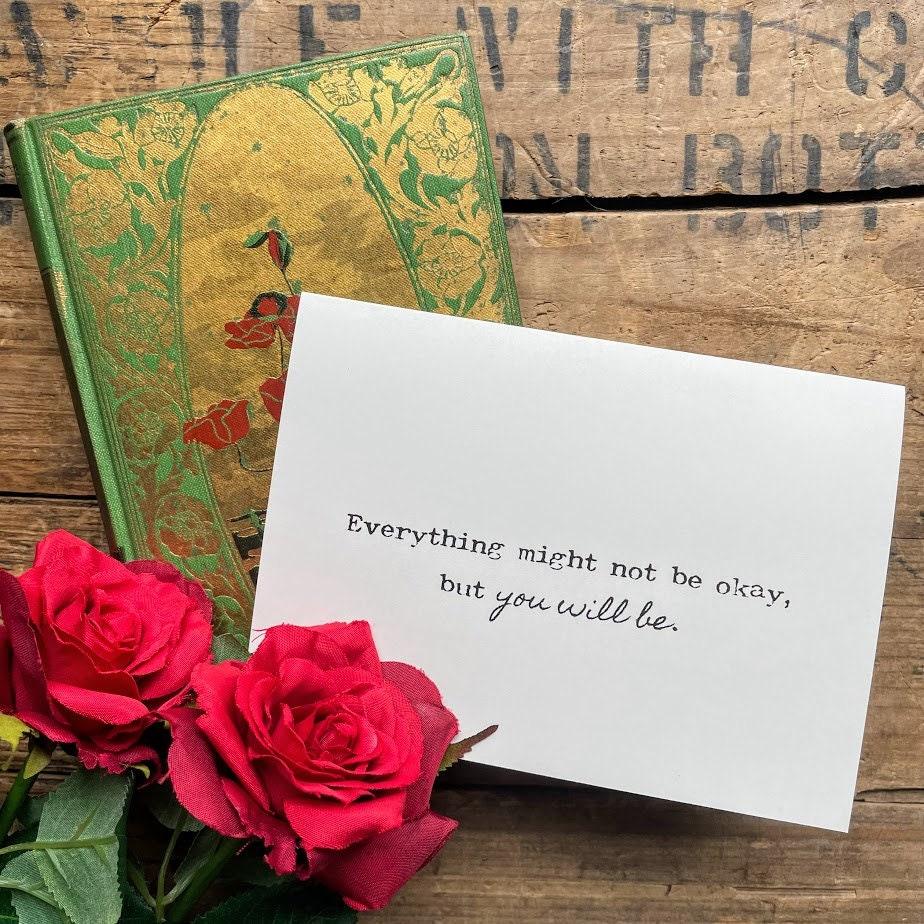 WITH C
BOT
Everything might not be okay,
but you will be.